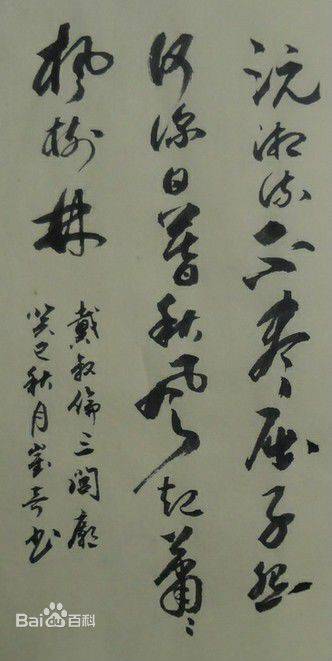 沅湘流不尽屈子怨
何深日暮秋风起萧〻
枫树林
戴叔伦三闾庙
癸巳秋月书
Bai百科